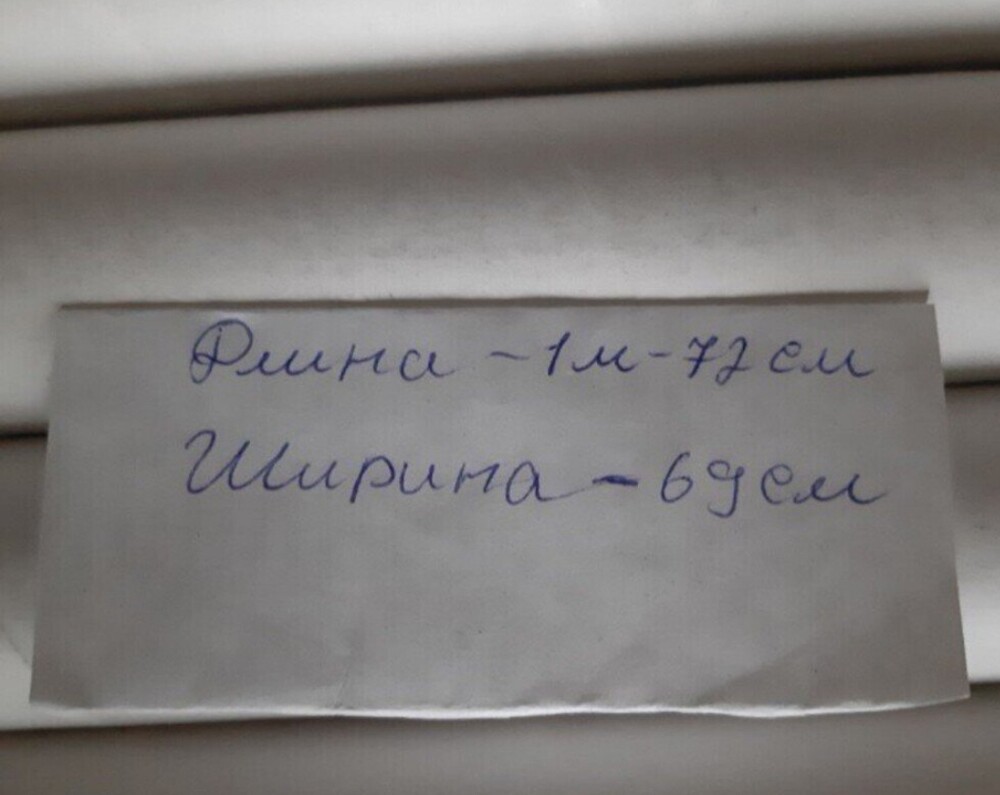 Длина - 1м - 72 см
Ширина - 69 см